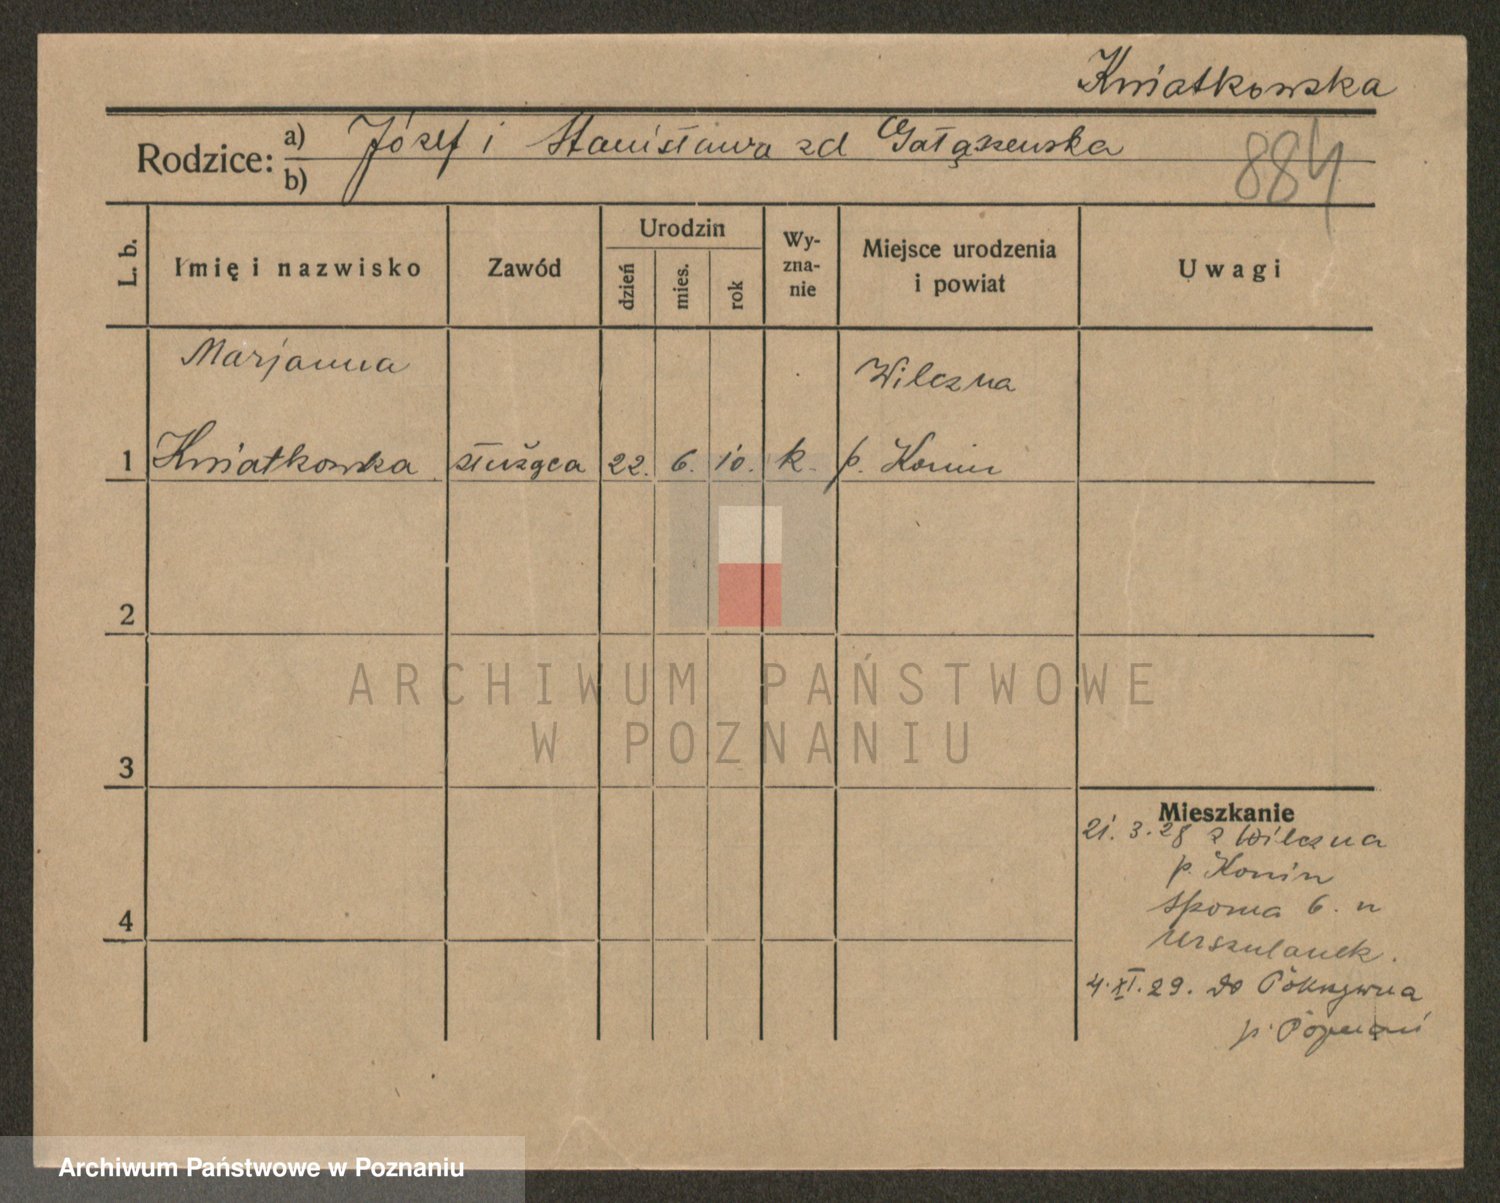 Kwiatkowska
Rodzice: a) Józef i Stanisława zd Gałązewska
b)
884
L. b.
Imię i nazwisko
Zawód
Urodzin
dzień
mies.
rok
Wy-
zna-
nie
Miejsce urodzenia
i powiat
Uwagi
Marjanna
Wilczna
1 Kwiatkowska służąca 22. 6. 10. k. p. Konin
2
3
4
ARCHIWUM PAŃSTWOWE
W POZNANIU
Mieszkanie
21. 3. 28 z Wilczna
p. Konin
6. u
Urszulanek.
4. XI. 29. do Pokrzywna
p. Poznań
Archiwum Państwowe w Poznaniu